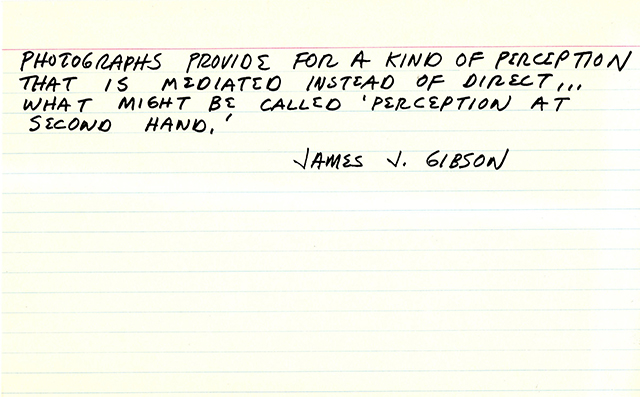 PHOTOGRAPHS PROVIDE FOR A KIND OF PERCEPTION
THAT IS MEDIATED INSTEAD OF DIRECT...
WHAT MIGHT BE CALLED 'PERCEPTION AT
SECOND HAND.'
JAMES J. GIBSON